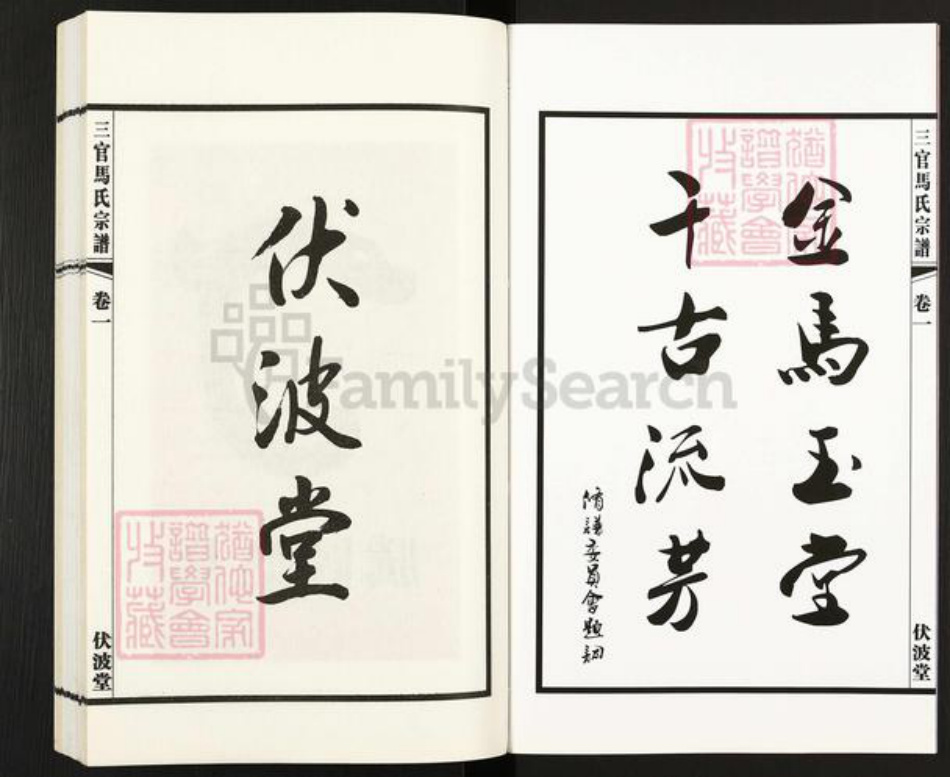 三官馬氏宗譜
卷一
伏波堂
金馬玉堂
千古流芳
脩譜委員會題
伏波堂
三官馬氏宗譜
卷一
伏波堂
猶他家譜學會收藏
猶他家譜學會收藏
FamilySearch